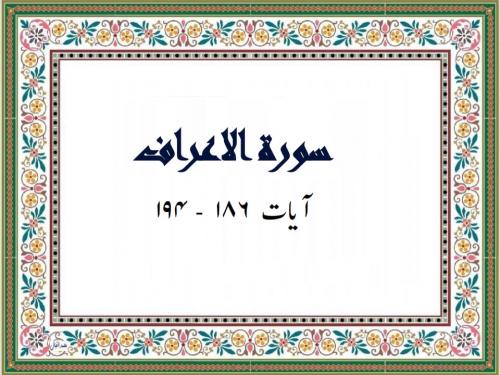 سورة الاعراف
آیات ۱۸۶ - ۱۹۴